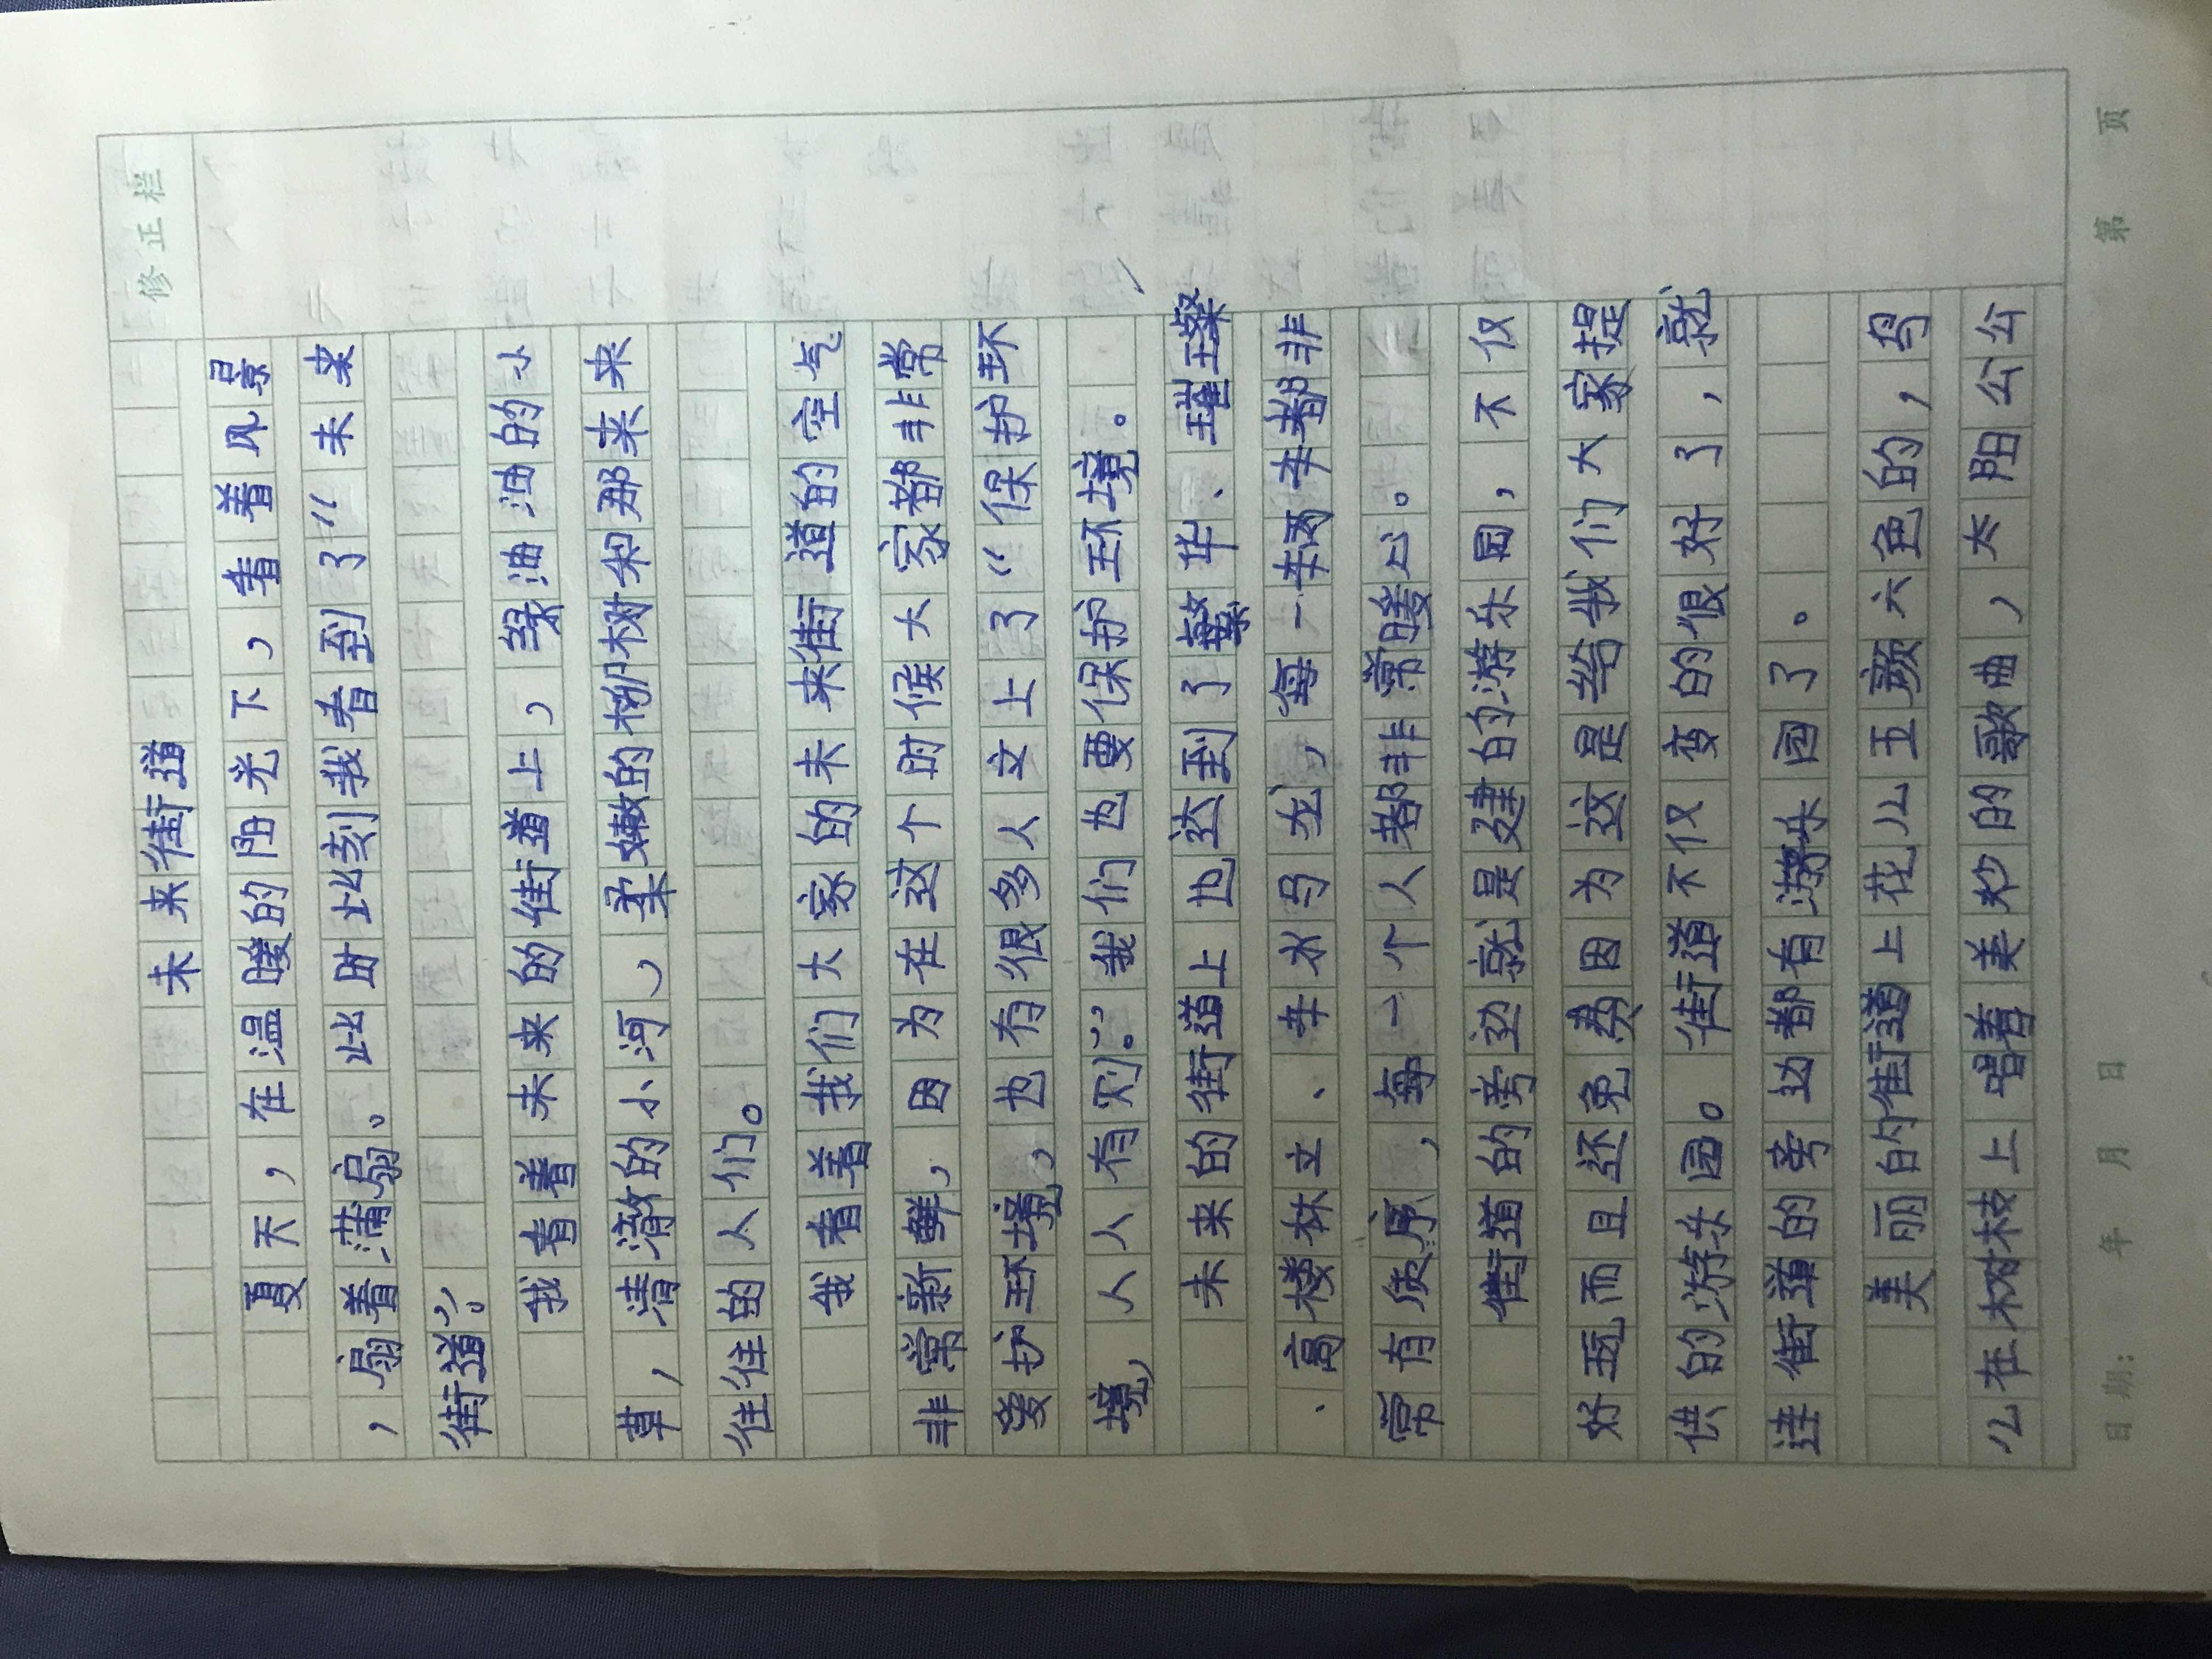 修正栏
未来街道
夏天，在温暖的阳光下，看着风景
，扇着蒲扇。此时此刻我看到了“未来
街道”。
我看着未来的街道上，绿油油的小
草，清澈的小河，柔嫩的柳树和那来来
往往的人们。
我看着我们大家的未来街道的空气
非常新鲜，因为在这个时候大家都非常
爱护环境，也有很多人立上了“保护环
境，人人有则。”我们也要保护环境。
未来的街道上也达到了繁华、璀璨
、高楼林立、车水马龙，每一车两车都非
常有序，每一个人都非常暖心。
街道的旁边就是建的游乐园，不仅
好玩而且还免费因为这是给我们大家提
供的游乐园。街道不仅变的很好了，就
连街道的旁边都有游乐园了。
美丽的街道上花儿五颜六色的，鸟
儿在树枝上唱着美妙的歌曲，太阳公公
日期： 年 月 日 第 页